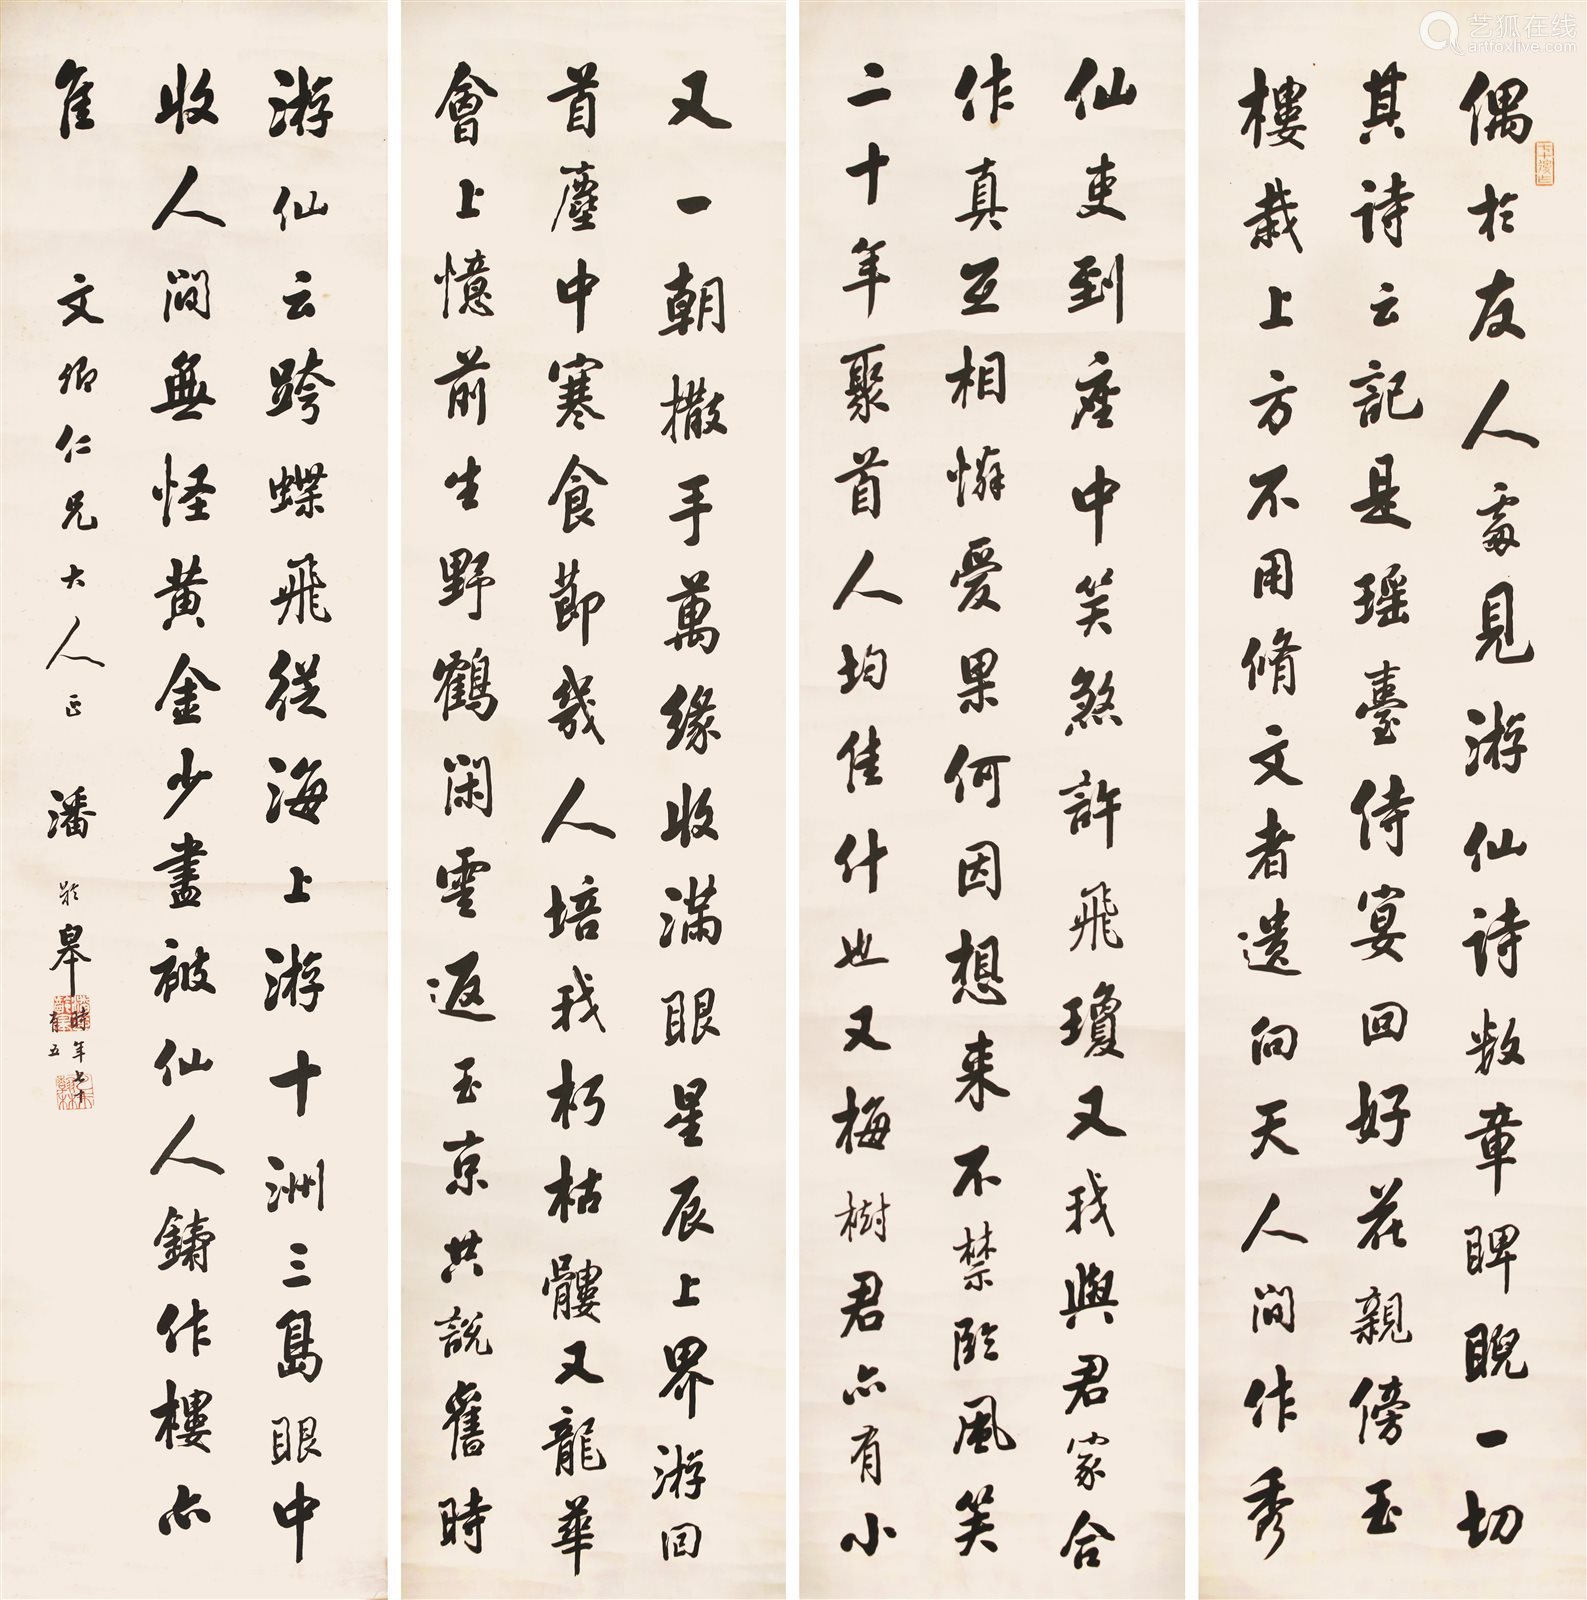 偶於友人處見游仙詩數章睥睨一切
其詩云記是瑶臺侍宴回好花親傍玉
樓栽上方不用脩文者遺向天人間作秀
仙吏到座中笑煞許飛瓊又我與君家合
作真互相憐愛果何因想来不禁臨風笑
二十年聚首人均佳什也又梅樹君亦有小
又一朝撒手萬緣收滿眼星辰上界游回
首塵中寒食節幾人培我朽枯髏又龍華
會上憶前生野鶴閑雲返玉京共説舊時
游仙云跨蝶飛從海上游十洲三島眼中
收人間無怪黄金少盡被仙人鑄作樓亦
隹
文卿仁兄大人正
潘齡皋
時年七十
有五
艺狐在线
artfoxlive.com